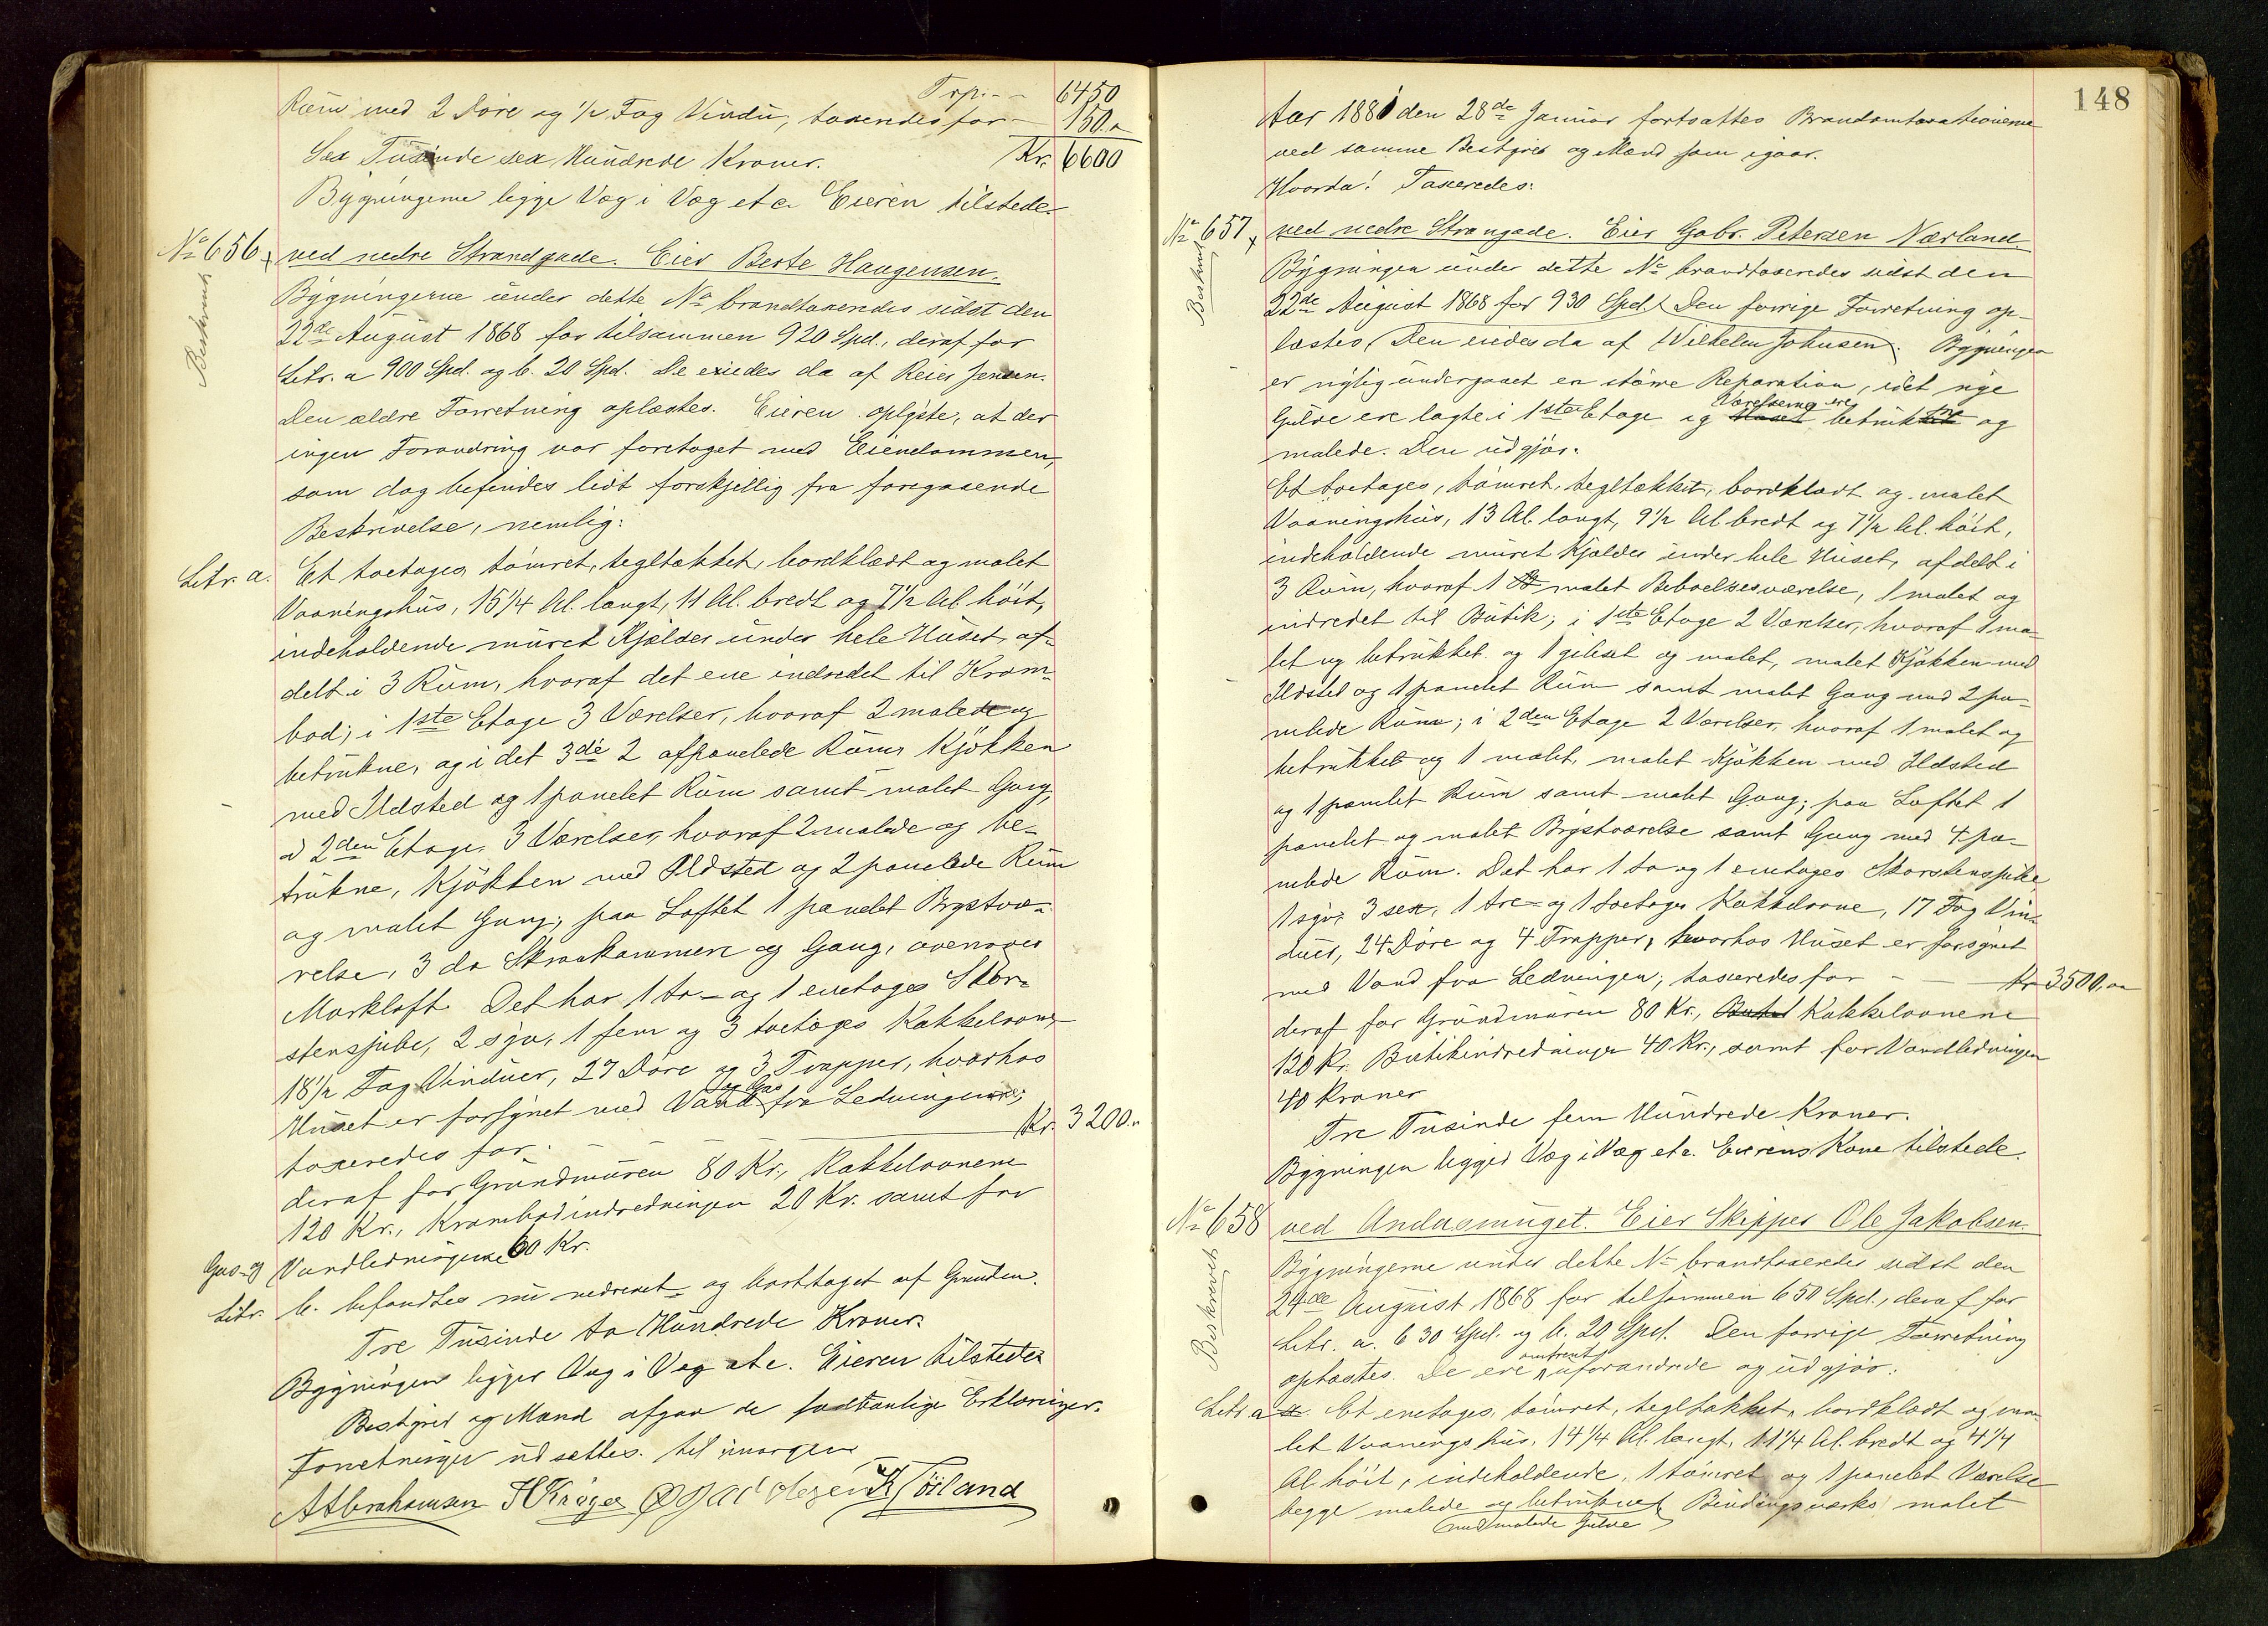 Trp. - - 6450
Rum med 2 Döre og 1/2 Fag Vindu, taxeredes for - 150 "
Sex Tusinde sex Hundrede Kroner. Kr. 6600
Bygningerne ligge Væg i Væg etc. Eieren tilstede.
No 656 ved nedre Strandgade. Eier Berte Haugensen.
Beskrevet
Bygningerne under dette No brandtaxeredes sidst den
22de August 1868 for tilsammen 920 Spd., deraf for
Litr. a 900 Spd. og b. 20 Spd. De eiedes da af Reier Jensen.
Den ældre Forretning oplæstes. Eieren oplyste, at der
ingen Forandring var foretaget med Eiendommen,
som dog befindes lidt forskjellig fra foregaaende
Beskrivelse, nemlig:
Litr. a. Et toetages, tömret, tegltækket, bordklædt og malet
Vaaningshus, 15 1/4 Al. langt, 11 Al. bredt og 7 1/2 Al. höit,
indeholdende muret Kjælder under hele Huset, af-
delt i 3 Rum, hvoraf det ene indredet til Kram-
bod; i 1ste Etage 3 Værelser, hvoraf 2 malede og
betrukne, og i det 3die 2 afpanelede Rum, Kjökken
med Ildsted og 1 panelet Rum samt malet Gang,
i 2den Etage, 3 Værelser, hvoraf 2 malede og be-
trukne, Kjökken med Ildsted og 2 panelede Rum
og malet Gang; paa Loftet 1 panelet Brystvæ-
relse, 3 do Skraakammere og Gang, ovenover
Mørkloft. Det har 1 to- og 1 enetages Skor-
stenspibe, 2 syv, 1 fem og 3 toetages Kakkelovne,
18 1/2 Fag Vinduer, 27 Döre og 3 Trapper, hvorhos
Huset er forsynet med Vand og Gas fra Ledningerne;
taxeredes for - - Kr. 3200 "
deraf for Grundmuren 80 Kr., Kakkelovnene
120 Kr., Krambodindredningen 20 Kr. samt for
Gas- og Vandledningerne 60 Kr.
Litr. b. befandtes nu nedrevet og borttaget af Grunden.
Tre Tusinde to Hundrede Kroner.
Bygningen ligger Væg i Væg etc. Eieren tilstede.
Bestyrer og Mænd afgav de sædvanlige Erklæringer.
Forretningen udsættes til imorgen
A Abrahamsen H Kröger K Törland
148
Aar 1881 den 28de Januar fortsattes Brandomtaxationerne
ved samme Bestyrer og Mænd som igaar.
Hvorda! Taxeredes:
No 657 ved nedre Strangade. Eier Gabr. Petersen Nærland.
Beskrevet
Bygningen under dette No brandtaxeredes sidst den
22de August 1868 for 930 Spd. Den forrige Forretning op-
læstes (Den eiedes da af Wilhelm Johnsen). Bygningen
er nylig undergaaet en större Reparation, idet nye
Gulve ere lagte i 1ste Etage og Huset Værelserne ere betrukne og
malede. Den udgjör:
Et toetages, tömret, tegltækket, bordklædt og malet
Vaaningshus, 13 Al. langt, 9 1/2 Al. bredt og 7 1/2 Al. höit,
indeholdende muret Kjælder under hele Huset, afdelt i
3 Rum, hvoraf 1 malet Beboelsesværelse, 1 malet og
indredet til Butik; i 1ste Etage 2 Værelser, hvoraf 1 ma-
let og betrukket og 1 gibset og malet, malet Kjökken med
Ildsted og 1 panelet Rum samt malet Gang med 2 pa-
nelede Rum; i 2den Etage 2 Værelser, hvoraf 1 malet og
betrukket og 1 malet, malet Kjökken med Ildsted
og 1 panelet Rum samt malet Gang; paa Loftet 1
panelet og malet Brystværelse samt Gang med 4 pa-
nelede Rum. Det har 1 to og 1 enetages Skorstenspibe,
1 syv, 3 sex, 1 tre- og 1 toetages Kakkelovne, 17 Fag Vin-
duer, 24 Döre og 4 Trapper, hvorhos Huset er forsynet
med Vand fra Ledningen; taxeredes for - - Kr 3500,00
deraf for Grundmuren 80 Kr., Kakkelovnene
120 Kr. Butikindredningen 40 Kr., samt for Vandledningen
40 Kroner
Tre Tusinde fem Hundrede Kroner.
Bygningen ligger Væg i Væg etc. Eierens Kone tilstede.
No 658 ved Andasmuget. Eier Skipper Ole Jakobsen.
Beskrevet
Bygningerne under dette No brandtaxeredes sidst den
24de August 1868 for tilsammen 650 Spd., deraf for
Litr. a. 630 Spd. og b. 20 Spd. Den forrige Forretning
oplæstes. De ere omtrent uforandrede og udgjör:
Litr. a Et enetages, tömret, tegltækket, bordklædt og ma-
let Vaaningshus, 14 1/4 Al. langt, 11 1/4 Al. bredt og 4 1/4
Al. höit, indeholdende, 1 tömret og 1 panelet Værelse
begge malede og betrukne med malede Gulve Bindingsværks malet